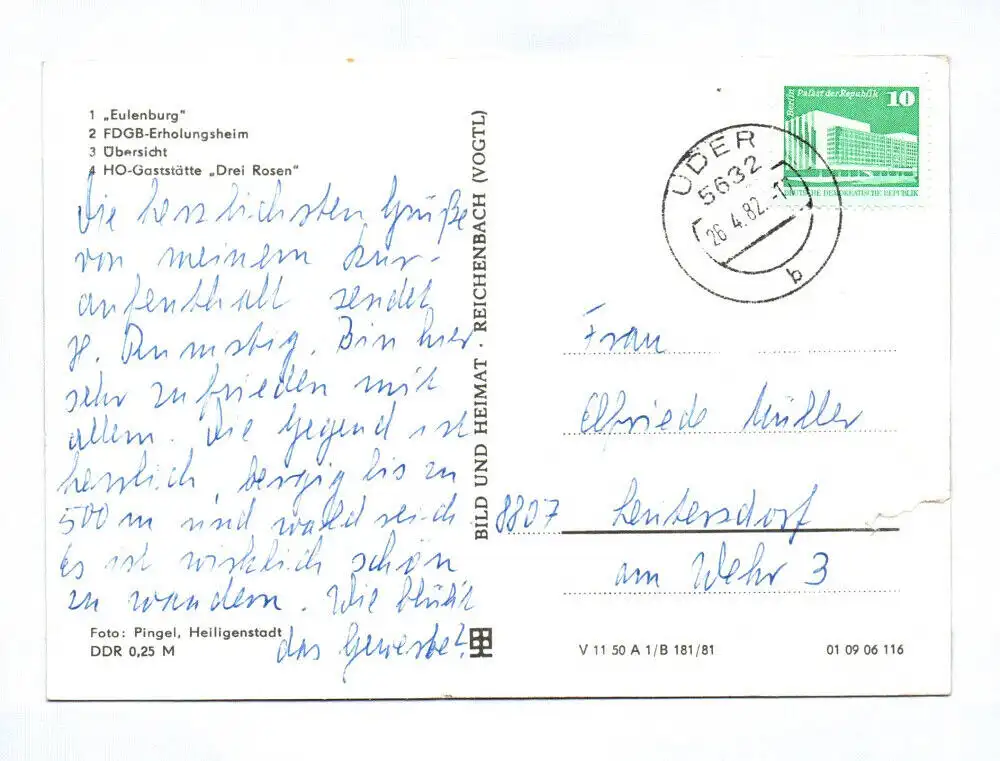 1 „Eulenburg"
2 FDGB-Erholungsheim
3 Übersicht
4 HO-Gaststätte „Drei Rosen"
Die herzlichsten Grüße
von meinem Kur-
aufenthalt sendet
H. Rumstig. Bin hier
sehr zufrieden mit
allem. Die Gegend ist
herrlich, bergig bis zu
500 m und waldreich
Es ist wirklich schön
zu wandern. Wie blüht
das Gewerbe?
Foto: Pingel, Heiligenstadt
DDR 0,25 M
BILD UND HEIMAT · REICHENBACH (VOGTL)
Berlin Palast der Republik 10
DEUTSCHE DEMOKRATISCHE REPUBLIK
UDER
5632
26.4.82.-11
b
Frau
Elfriede Müller
8807 Leutersdorf
am Wehr 3
V 11 50 A 1/B 181/81
01 09 06 116